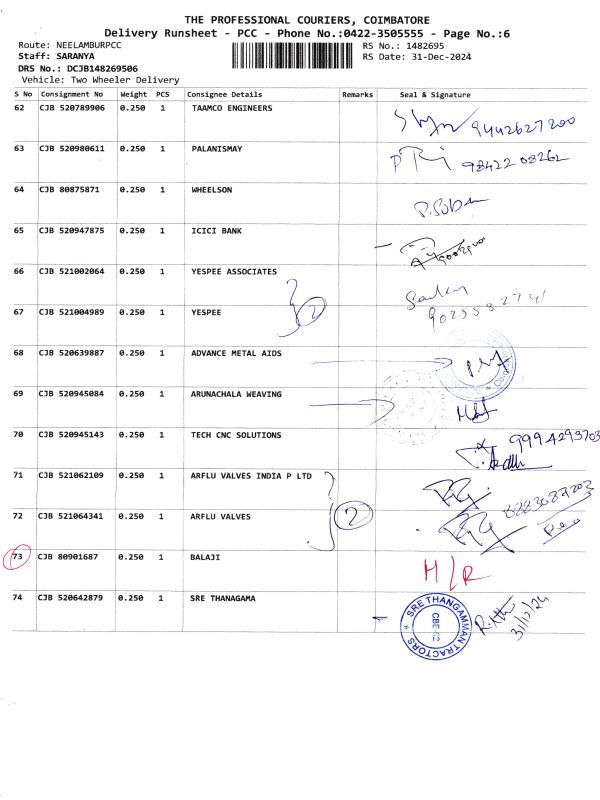 THE PROFESSIONAL COURIERS, COIMBATORE
Delivery Runsheet - PCC - Phone No.:0422-3505555 - Page No.:6
Route: NEELAMBURPCC RS No.: 1482695
Staff: SARANYA RS Date: 31-Dec-2024
DRS No.: DCJB148269506
Vehicle: Two Wheeler Delivery
S No Consignment No Weight PCS Consignee Details Remarks Seal & Signature
62 CJB 520789906 0.250 1 TAAMCO ENGINEERS 9442627200
63 CJB 520980611 0.250 1 PALANISMAY 98422 08262
64 CJB 80875871 0.250 1 WHEELSON
65 CJB 520947875 0.250 1 ICICI BANK
66 CJB 521002064 0.250 1 YESPEE ASSOCIATES
67 CJB 521004989 0.250 1 YESPEE 2
68 CJB 520639887 0.250 1 ADVANCE METAL AIDS
69 CJB 520945084 0.250 1 ARUNACHALA WEAVING
70 CJB 520945143 0.250 1 TECH CNC SOLUTIONS 9994293703
71 CJB 521062109 0.250 1 ARFLU VALVES INDIA P LTD
72 CJB 521064341 0.250 1 ARFLU VALVES 2
73 CJB 80901687 0.250 1 BALAJI M/R
74 CJB 520642879 0.250 1 SRE THANAGAMA SRE THANGAMMAN TRACTORS CBE-62 31/12/24